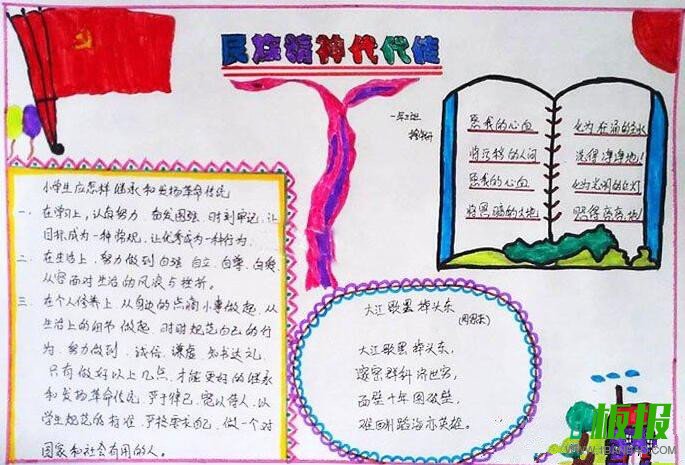 民族精神代代传
愿我的心血
将污秽的人间
愿我的心血
将黑暗的大地
化为奔涌的泉水
洗得净净地!
化为光明的红灯
照得亮亮地!
小学生应怎样继承和发扬革命传统
一、在学习上,认真努力,奋发图强,时刻牢记,让
目标成为一种常规,让优秀成为一种行为.
二、在生活上,努力做到自强、自立、自尊、自爱,
从容面对生活的风浪与挫折.
三、在个人修养上,从身边的点滴小事做起,从
生活上的细节做起,时时规范自己的行
为,努力做到,诚信、谦虚、知书达礼,
只有做好以上几点,才能更好的继承
和发扬革命传统,严于律己,宽以待人,以
学生规范的标准,严格要求自己,做一个对
国家和社会有用的人.
大江歌罢掉头东
(周恩来)
大江歌罢掉头东,
邃密群科济世穷,
面壁十年图破壁,
难酬蹈海亦英雄.
板报